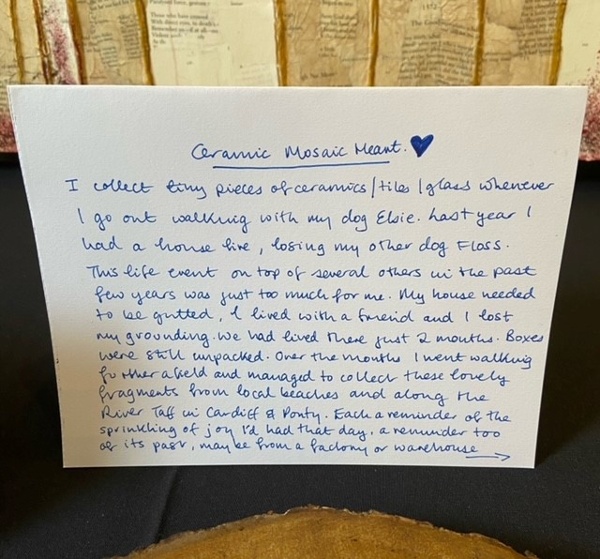 Ceramic Mosaic Heart.
I collect tiny pieces of ceramics/tiles/glass whenever
I go out walking with my dog Elsie. Last year I
had a house fire, losing my other dog Floss.
This life event on top of several others in the past
few years was just too much for me. My house needed
to be gutted, I lived with a friend and I lost
my grounding. We had lived there just 2 months. Boxes
were still unpacked. Over the months I went walking
further afield and managed to collect these lovely
fragments from local beaches and along the
River Taff in Cardiff & Ponty. Each a reminder of the
sprinkling of joy I'd had that day. a reminder too
of its past, maybe from a factory or warehouse